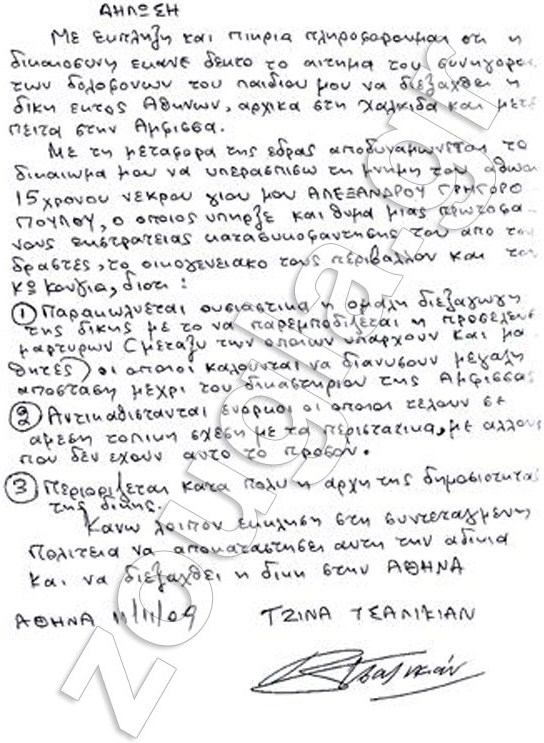 ΔΗΛΩΣΗ
Με εκπληξη και πικρια πληροφορουμαι οτι η
δικαιοσυνη εκανε δεκτο το αιτημα του συνηγορου
των δολοφονων του παιδιου μου να διεξαχθει η
δικη εκτος Αθηνων, αρχικα στη Χαλκιδα και μετε
πειτα στην Αμφισσα.
Με τη μεταφορα της εδρας αποδυναμωνεται το
δικαιωμα μου να υπερασπισω τη μνημη του αθωου
15χρονου νεκρου γιου μου ΑΛΕΞΑΝΔΡΟΥ ΓΡΗΓΟΡΟ
ΠΟΥΛΟΥ, ο οποιος υπηρξε και θυμα μιας πρωτοφα
νους εκστρατειας κατασυκοφαντησης του απο του
δραστες, το οικογενειακο τους περιβαλλον και τον
κω Κουγια, διοτι:
① Παρακωλυεται ουσιαστικα η ομαλη διεξαγωγη
της δικης με το να παρεμποδιζεται η προσελευσ
μαρτυρων (μεταξυ των οποιων υπαρχουν και μα
θητες) οι οποιοι καλουνται να διανυσουν μεγαλη
αποσταση μεχρι του δικαστηριου της Αμφισσας
② Αντικαθιστανται ενορκοι οι οποιοι τελουν σε
αμεση τοπικη σχεση με τα περιστατικα, με αλλους
που δεν εχουν αυτο το προσον.
③ Περιοριζεται κατα πολυ η αρχη της δημοσιοτητας
της δικης.
Κανω λοιπον εκκληση στη συντεταγμενη
Πολιτεια να αποκαταστησει αυτη την αδικια
και να διεξαχθει η δικη στην ΑΘΗΝΑ
ΑΘΗΝΑ 11/11/09 ΤΖΙΝΑ ΤΣΑΛΙΚΙΑΝ
Τσαλικιάν
zougla.gr